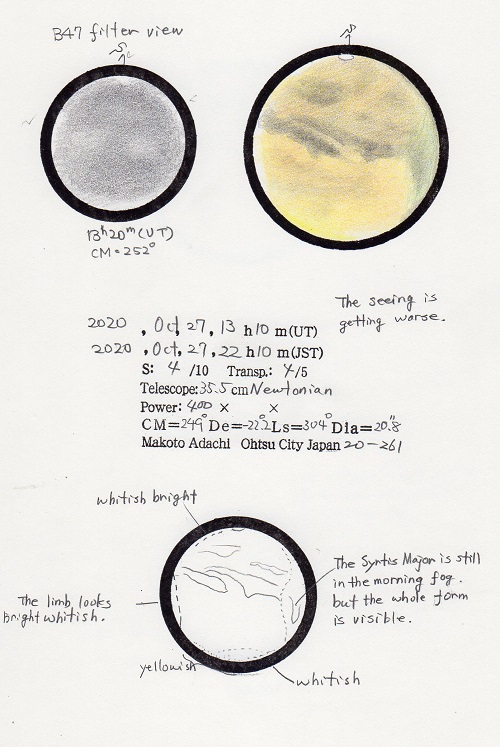 B47 filter view
S
S
13h20m(UT)
CM=252°
The seeing is
getting worse.
2020 , Oct, 27, 13 h10 m(UT)
2020 , Oct, 27, 22 h10 m(JST)
S: 4 /10 Transp.: 4/5
Telescope: 35.5 cm Newtonian
Power: 400 × ×
CM=249° De=-22.2° Ls=304° Dia=20.8"
Makoto Adachi Ohtsu City Japan 20-261
whitish bright
The Syrtis Major is still
in the morning fog.
but the whole form
is visible.
The limb looks
bright whitish.
yellowish
whitish